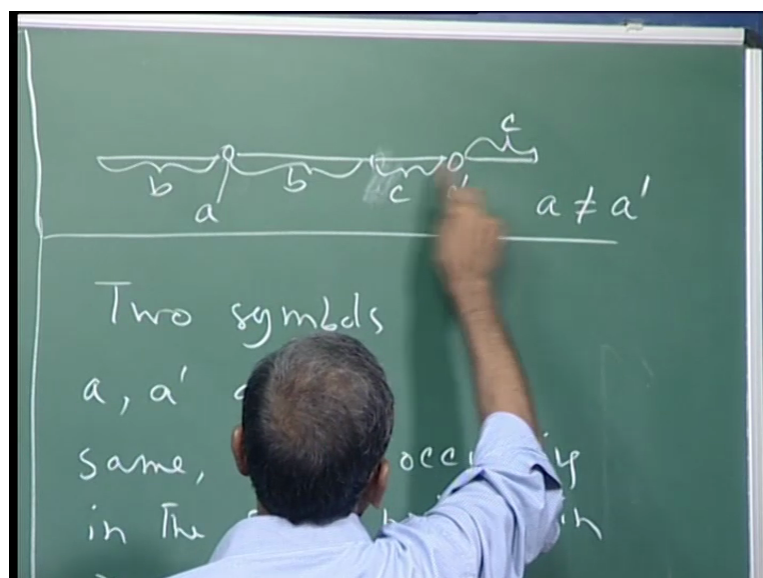 c
b b c
a a ≠ a'
Two symbols
a, a'
same,
in the